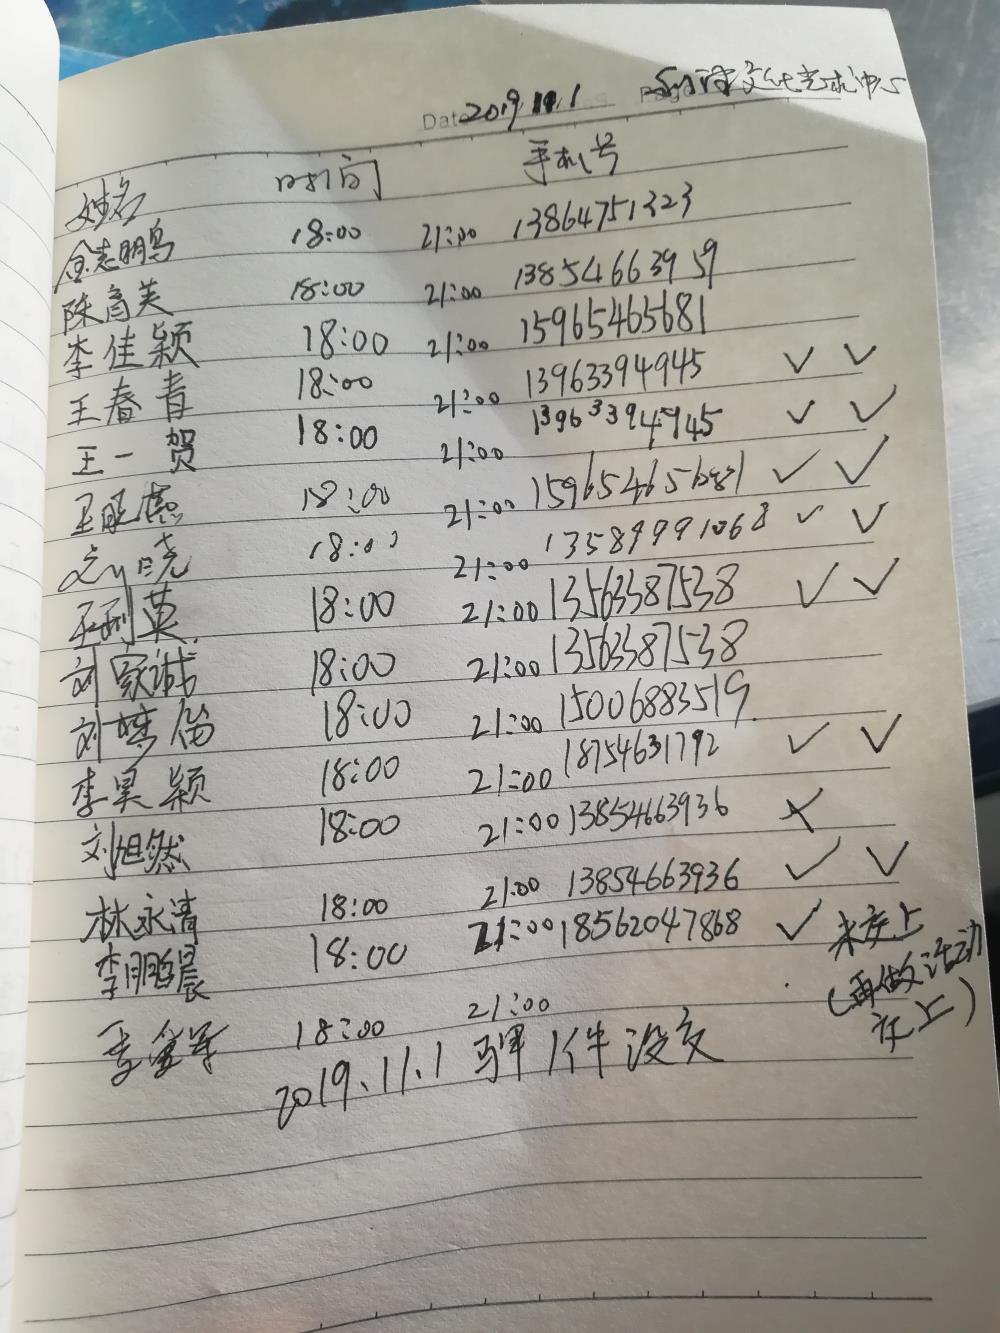 Date 2019.11.1 Page
姓名 时间 手机号
18:00 21:00 13864751323
陈育芙 18:00 21:00 13854663959
李佳颖 18:00 21:00 15965465681
王春青 18:00 21:00 13963394945 ✓ ✓
王一贺 18:00 21:00 13963394945 ✓ ✓
18:00 21:00 15965465681 ✓ ✓
刘晓 18:00 21:00 13589991068 ✓ ✓
王利英 18:00 21:00 13563387538 ✓ ✓
刘家诚 18:00 21:00 13563387538
刘梦 18:00 21:00 15006883519
李昊颖 18:00 21:00 18754631792 ✓ ✓
刘旭然 18:00 21:00 13854663936 ✗
林永清 18:00 21:00 13854663936 ✓ ✓
李鹏晨 18:00 21:00 18562047868 ✓ 未交上
18:00 21:00 (再做活动
交上)
2019.11.1 1件没交